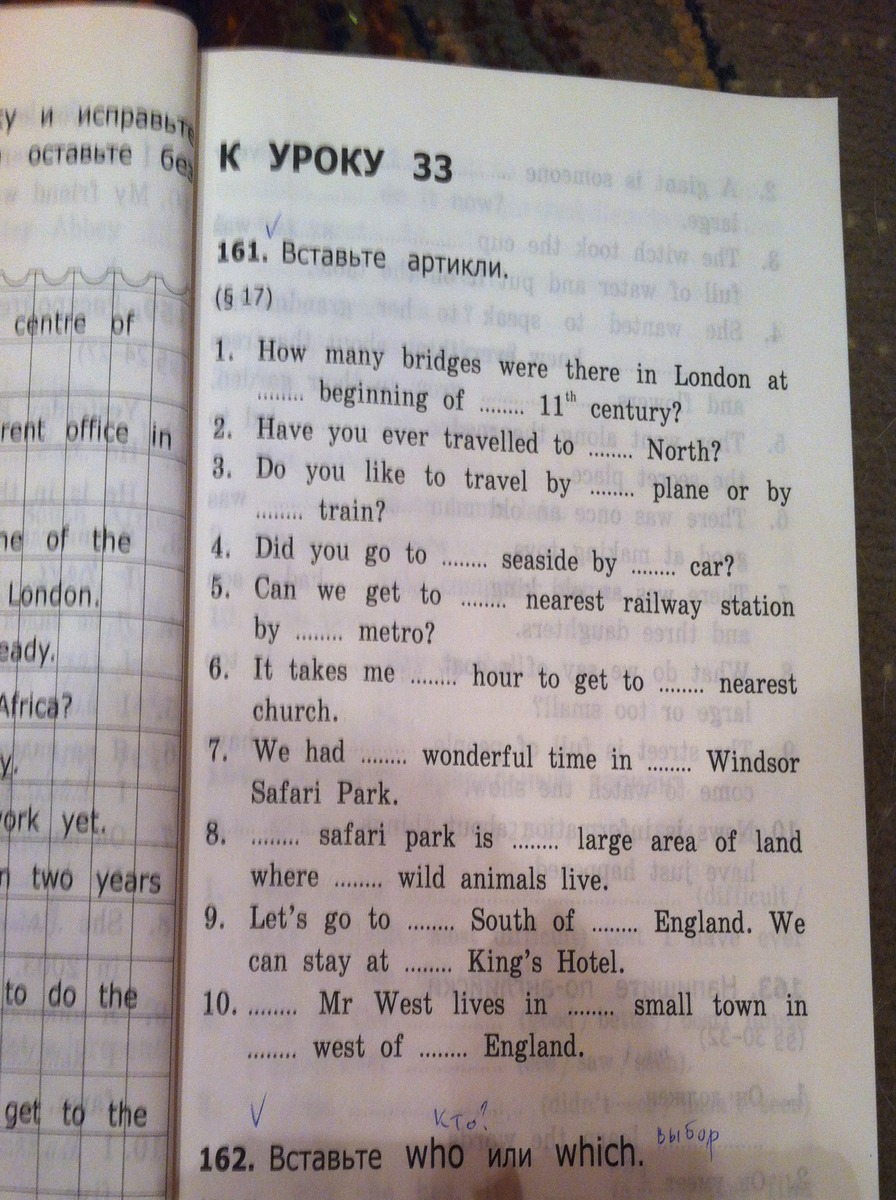 у и исправьте
оставьте без
centre of
rent office in
ne of the
London.
eady.
Africa?
y.
ork yet.
n two years
to do the
get to the
К УРОКУ 33
V
161. Вставьте артикли.
(§ 17)
1. How many bridges were there in London at
........ beginning of ........ 11th century?
2. Have you ever travelled to ........ North?
3. Do you like to travel by ........ plane or by
........ train?
4. Did you go to ........ seaside by ........ car?
5. Can we get to ........ nearest railway station
by ........ metro?
6. It takes me ........ hour to get to ........ nearest
church.
7. We had ........ wonderful time in ........ Windsor
Safari Park.
8. ........ safari park is ........ large area of land
where ........ wild animals live.
9. Let's go to ........ South of ........ England. We
can stay at ........ King's Hotel.
10. ........ Mr West lives in ........ small town in
........ west of ........ England.
V кто? выбор
162. Вставьте who или which.